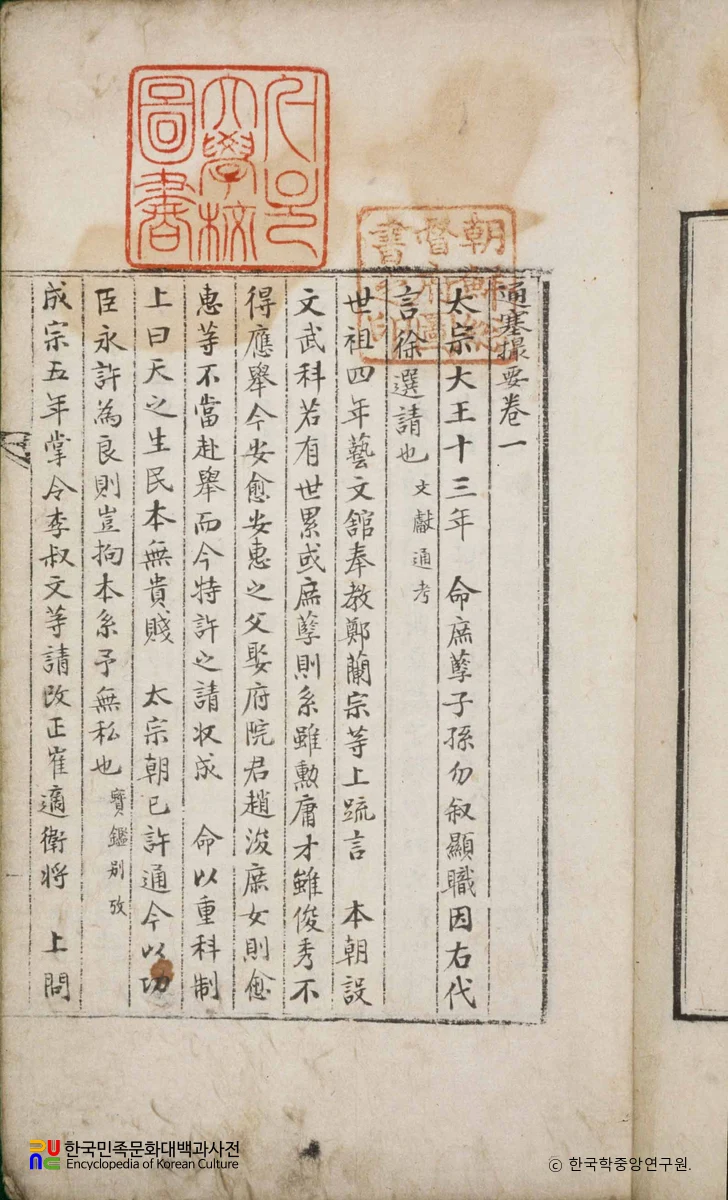 通塞撮要卷一
太宗大王十三年 命庶孽子孫勿叙顯職因右代
言徐選請也 文獻通考
世祖四年藝文舘奉教鄭蘭宗等上疏言 本朝設
文武科若有世累或庶孽則系雖勲庸才雖俊秀不
得應舉今安愈安惠之父娶府院君趙浚庶女則愈
惠等不當赴舉而今特許之請收成 命以重科制
上曰天之生民本無貴賤 太宗朝已許通今以功
臣永許為良則豈拘本系予無私也 寶鑑別攷
成宗五年掌令李叔文等請改正崔適衛將 上問
大學校
圖書
朝鮮總
督府圖
書
한국민족문화대백과사전
Encyclopedia of Korean Culture
ⓒ 한국학중앙연구원.